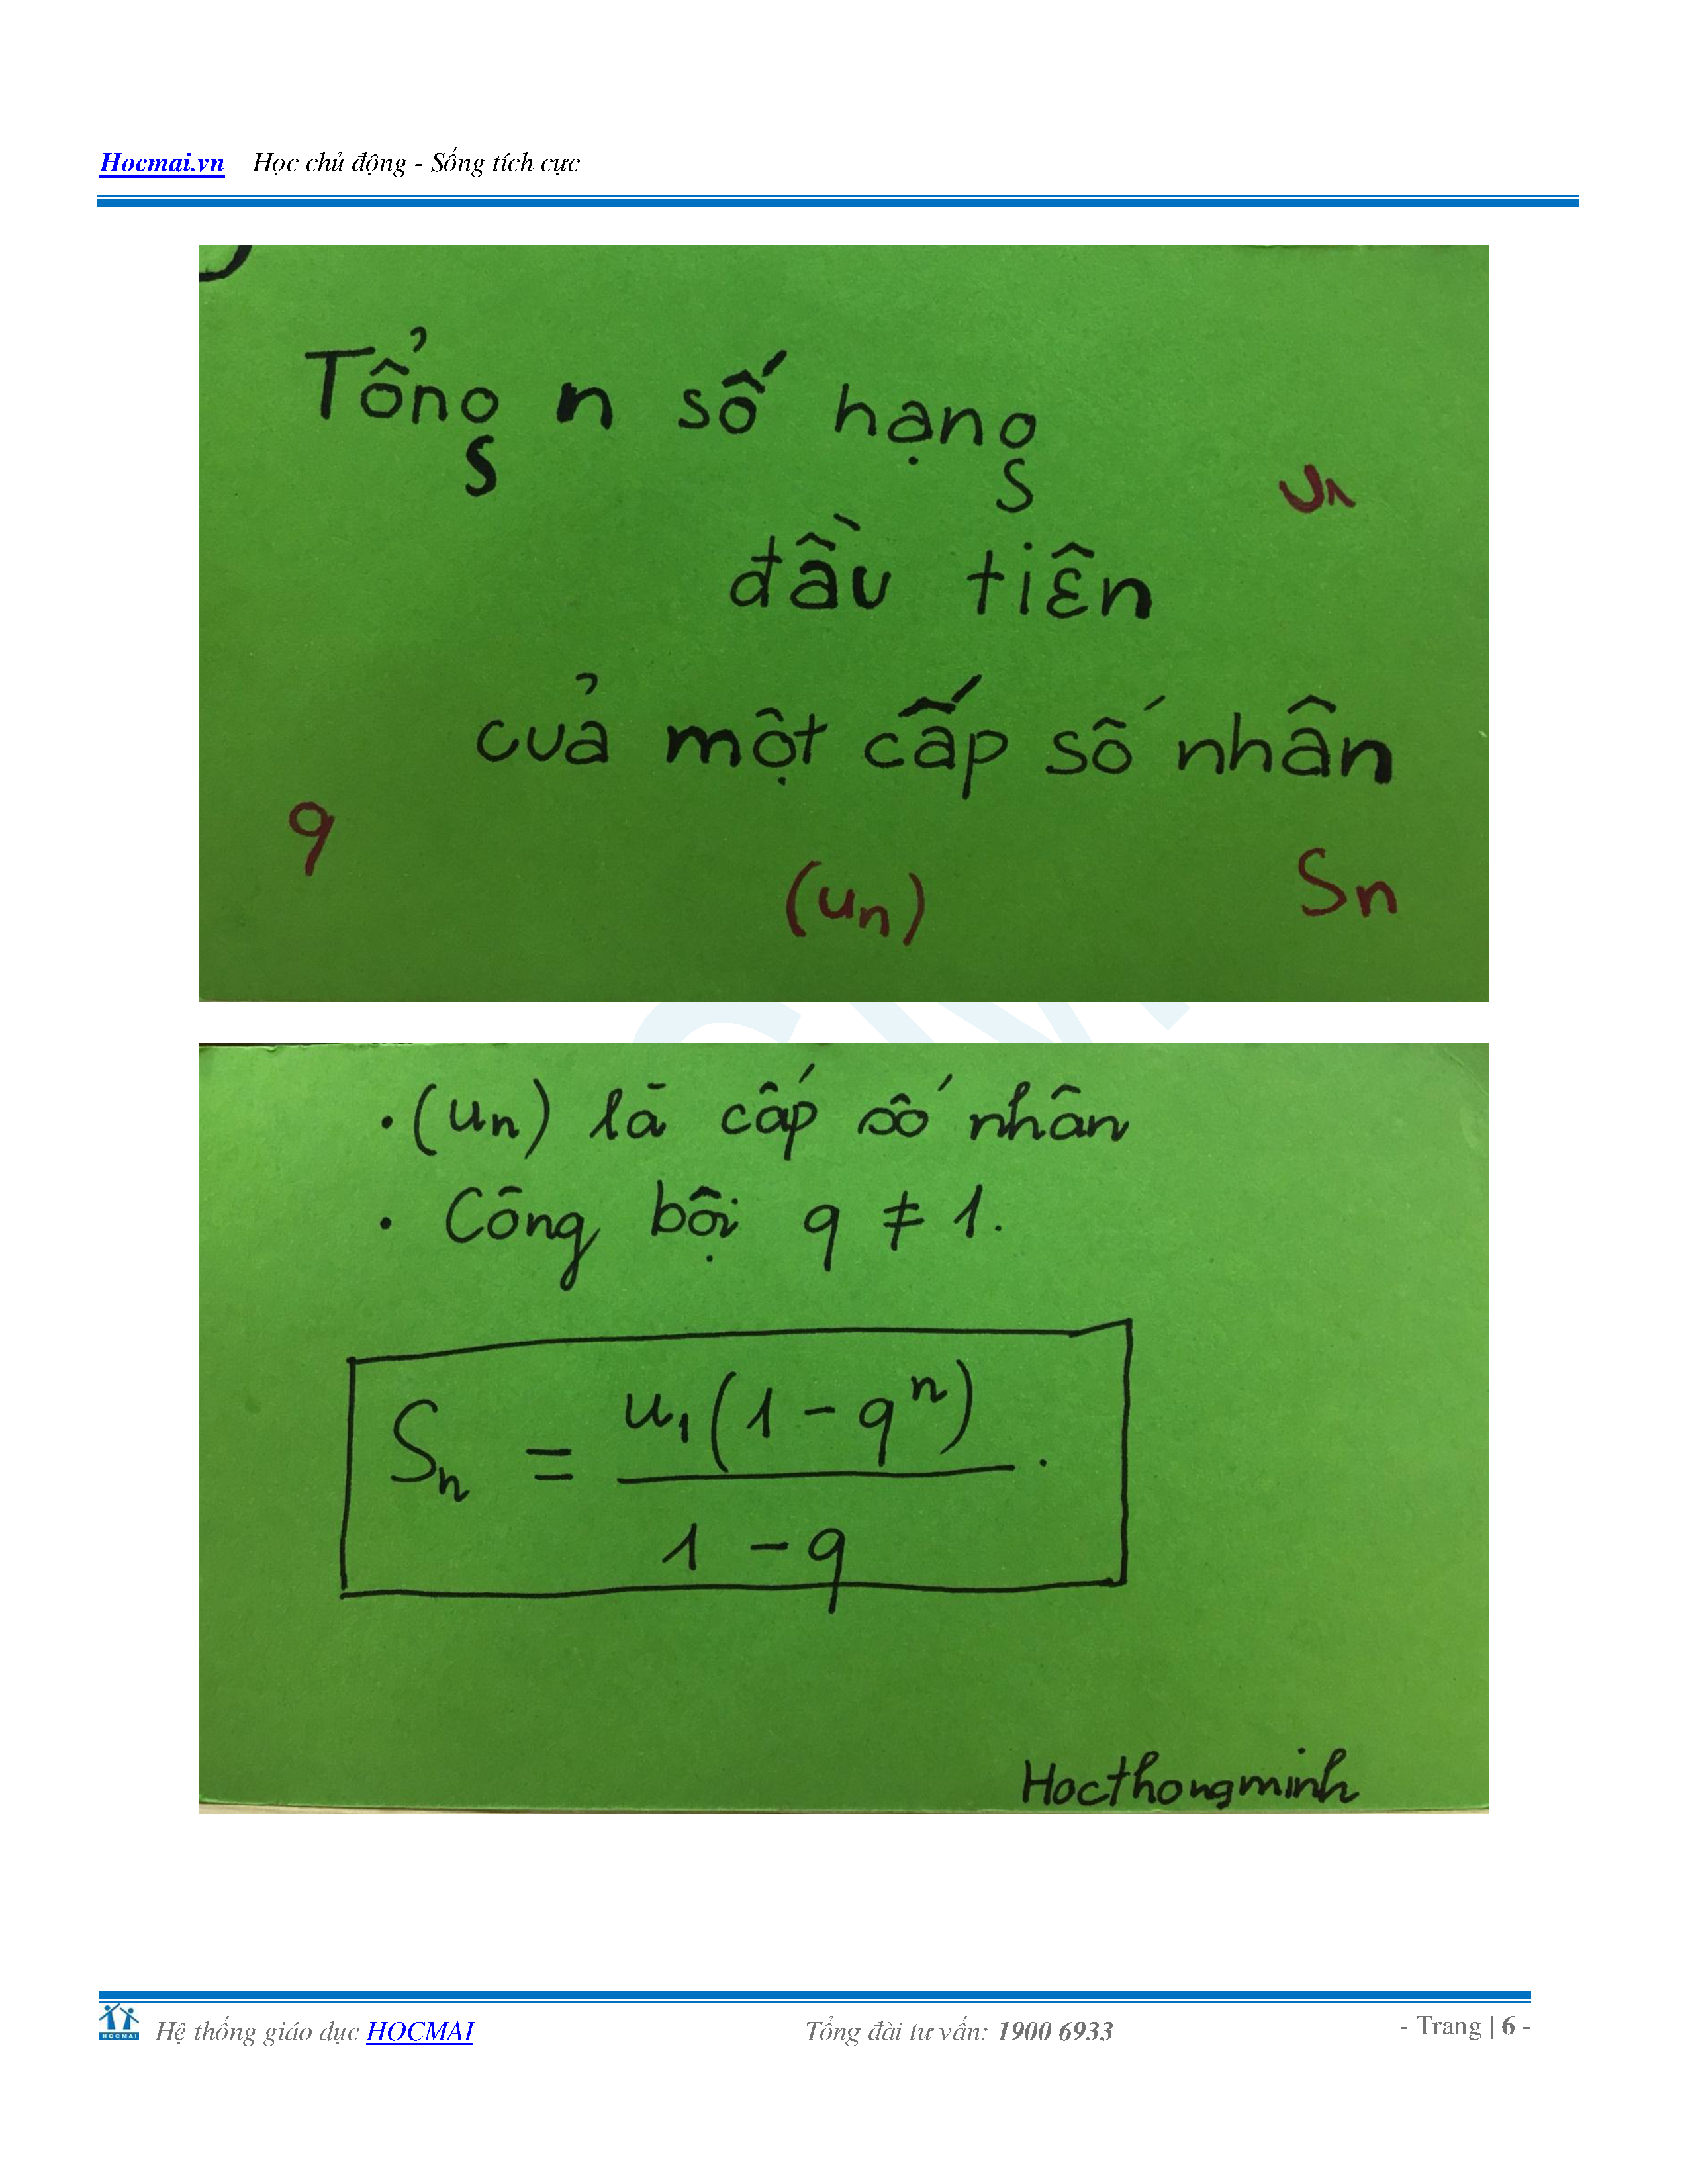 Hocmai.vn – Học chủ động - Sống tích cực
Tổng n số hạng
u1
đầu tiên
của một cấp số nhân
q
(un)
Sn
• (un) là cấp số nhân
• Công bội q ≠ 1.
Sn = u1(1 - q^n) / (1 - q).
Hocthongminh
HOCMAI
Hệ thống giáo dục HOCMAI Tổng đài tư vấn: 1900 6933 - Trang | 6 -